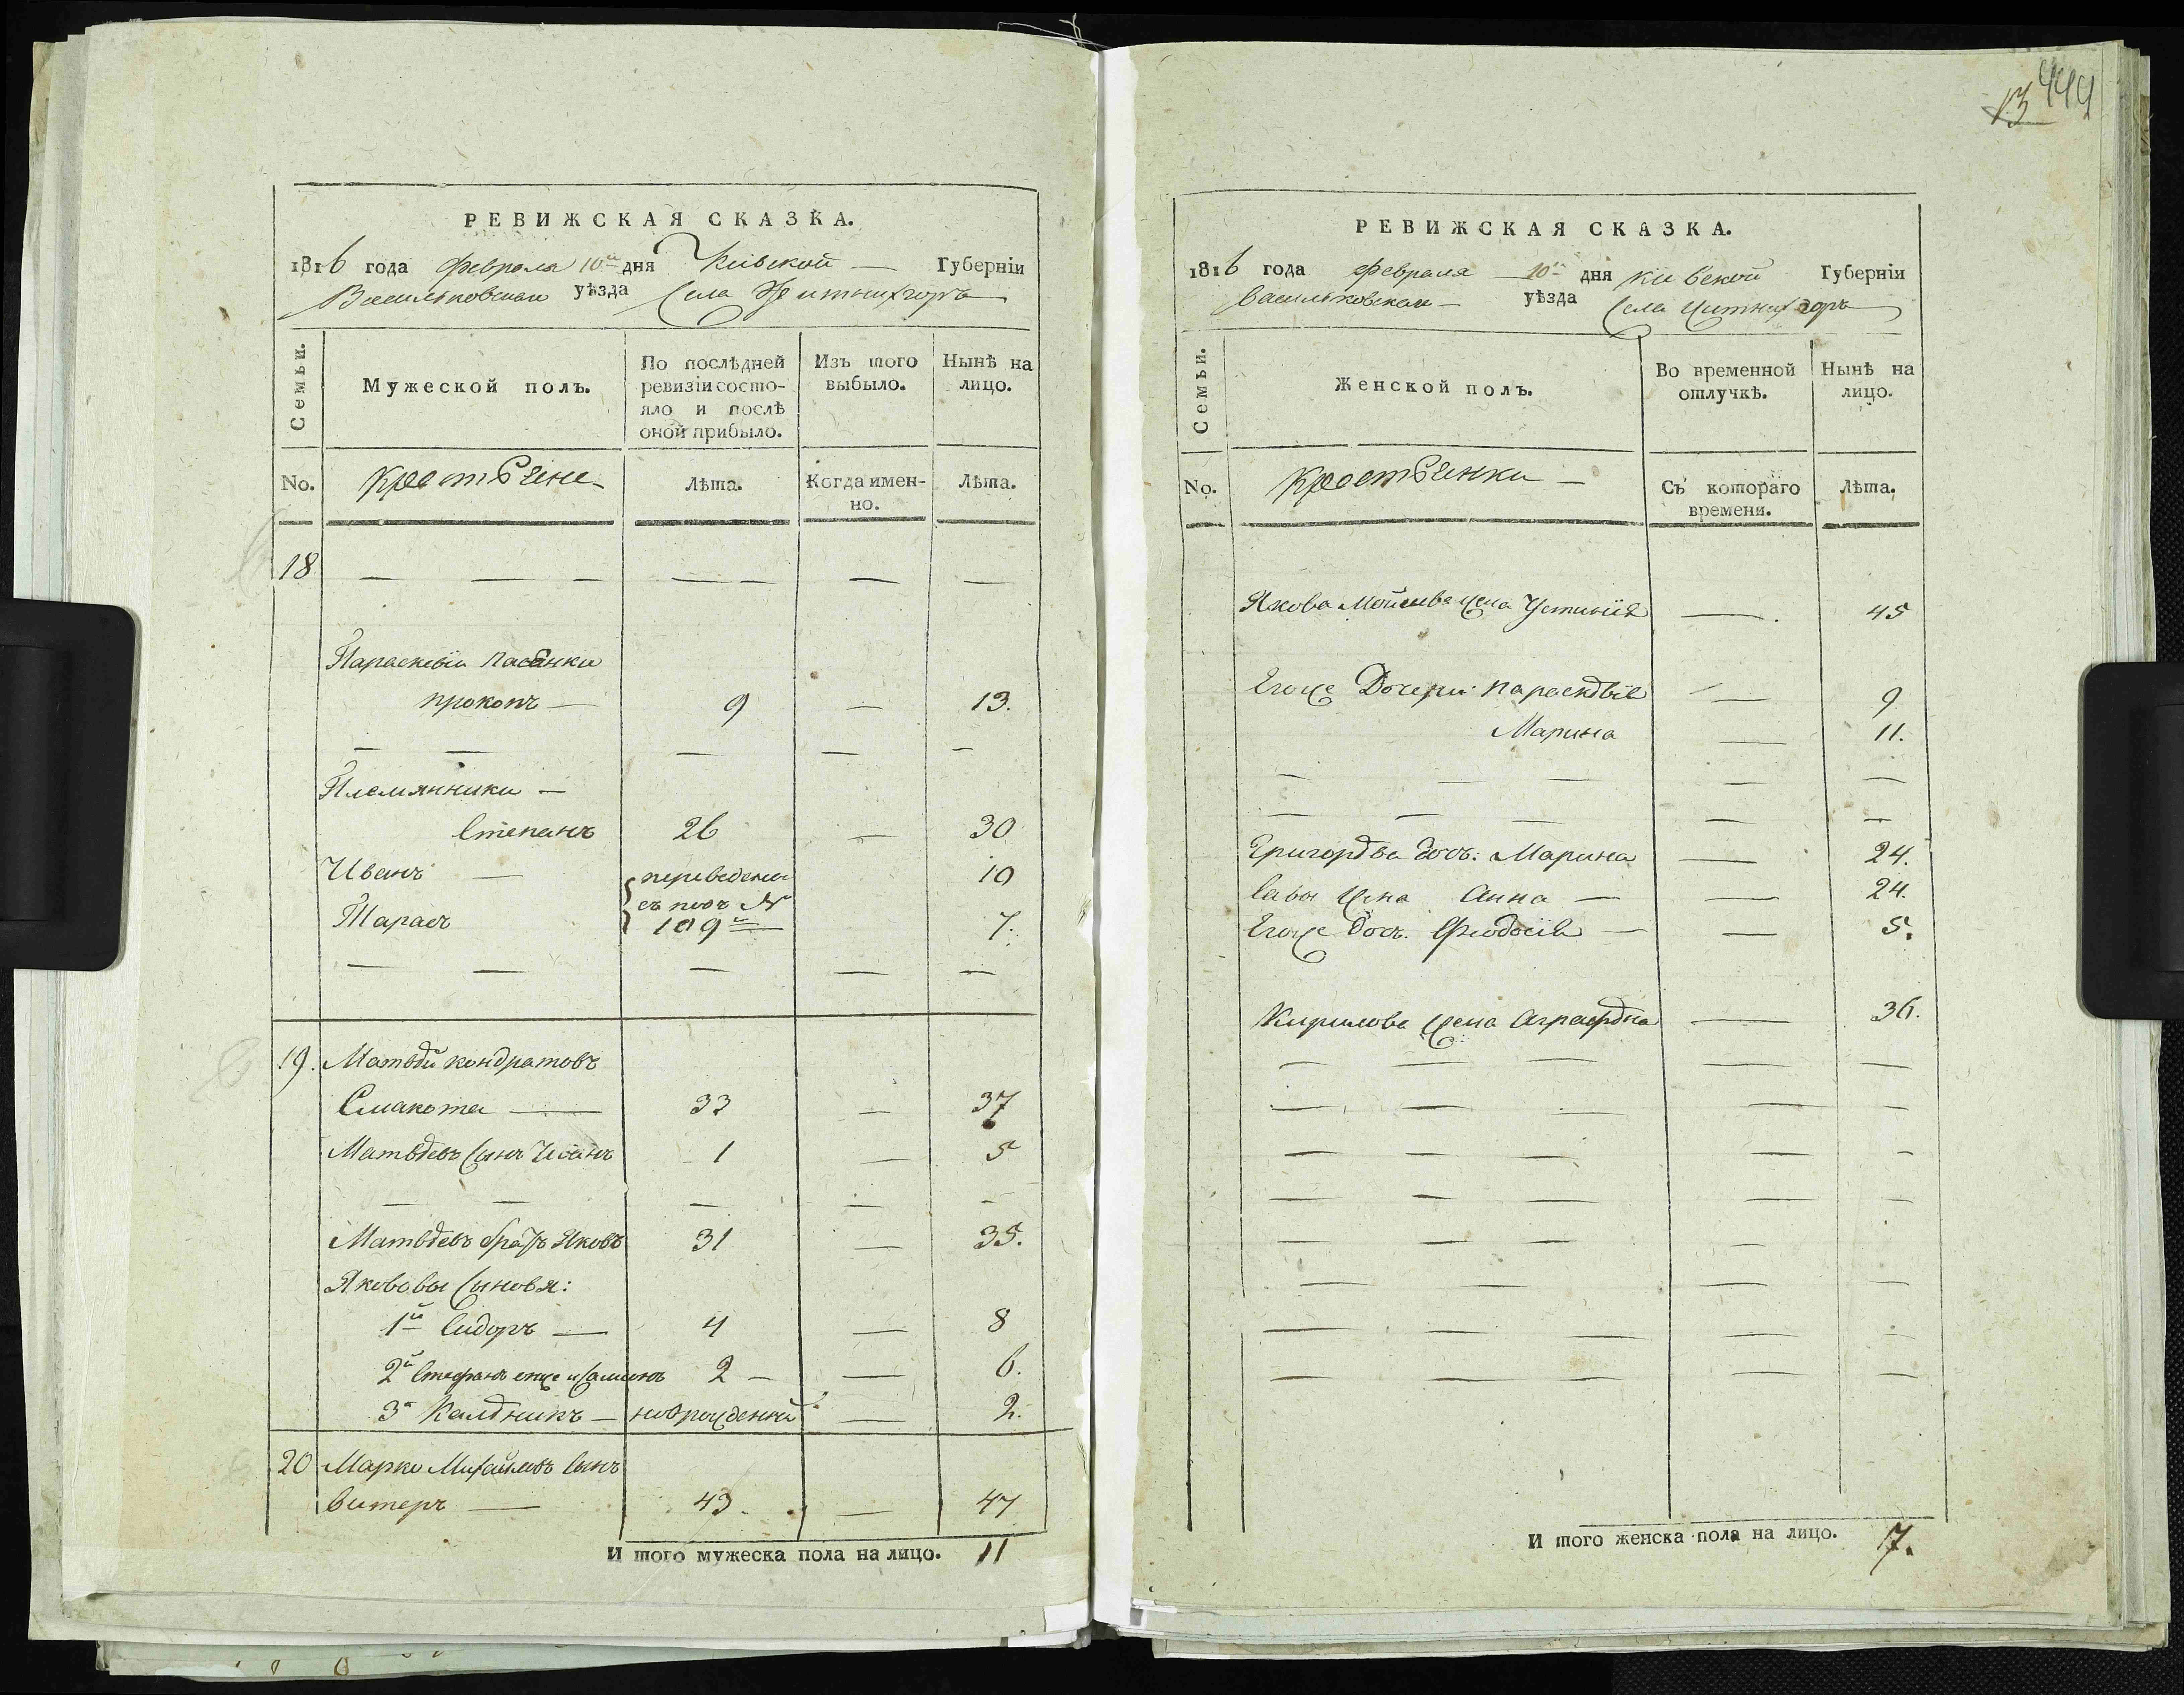 РЕВИЖСКАЯ СКАЗКА.
1816 года февраля 10го дня Киевской Губерніи
Васильковскаго уѣзда Села Житнихгоръ
Семьи.
Мужеской полъ.
По послѣдней ревизіи состояло и послѣ оной прибыло.
Изъ того выбыло.
Нынѣ на лицо.
No.
Крестьяне
Лѣта.
Когда именно.
Лѣта.
18
Параскевіи пасынки
прокопъ — 9 — 13.
Племянники —
Степанъ 26 — 30
Иванъ — переведены 10
съ подъ №
Тарасъ 109 7.
19. Матвѣй кондратовъ
Смакота — 33 — 37
Матвѣевъ сынъ Иванъ 1 — 5
Матвѣевъ братъ Яковъ 31 — 35.
Якововы сыновя:
1й Сидоръ — 4 — 8
2й Стефанъ 2 — — 6.
3й Калѣникъ — новрожденный — 2.
20 Марко Михайловъ сынъ
Витеръ — 43. — 47
И того мужеска пола на лицо. 11
13 444
РЕВИЖСКАЯ СКАЗКА.
1816 года февраля 10го дня Киевской Губерніи
Васильковскаго — уѣзда Села Житнихгоръ
Семьи.
Женской полъ.
Во временной отлучкѣ.
Нынѣ на лицо.
No.
Крестьянки —
Съ котораго времени.
Лѣта.
Якова Мойсеева жена Устинія — 45
Егоже Дочери: параскевія — 9
Марина — 11.
Григорѣва дочь: Марина — 24.
Савы жена Анна — — 24.
Егоже дочь. Феодосія — — 5.
Кирилова жена Аграфѣна — 36.
И того женска пола на лицо. 7.